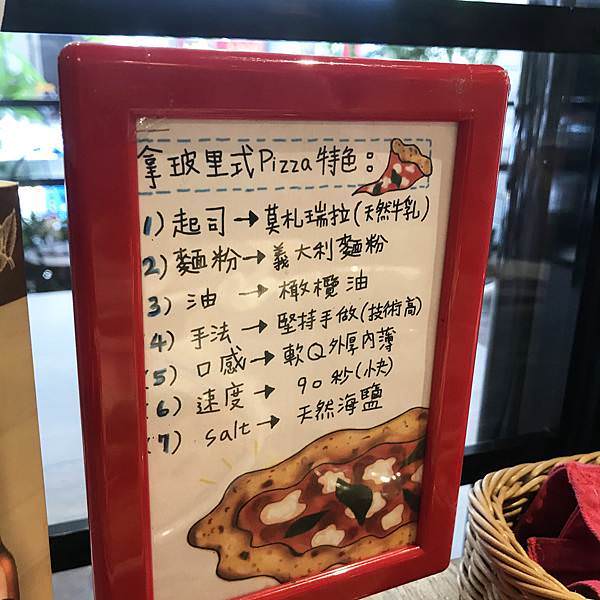 拿玻里式Pizza特色：
1) 起司→莫札瑞拉(天然牛乳)
2) 麵粉→義大利麵粉
3) 油 → 橄欖油
4) 手法→堅持手做(技術高)
5) 口感→軟Q外厚內薄
6) 速度→ 90秒(快)
7) salt→ 天然海鹽